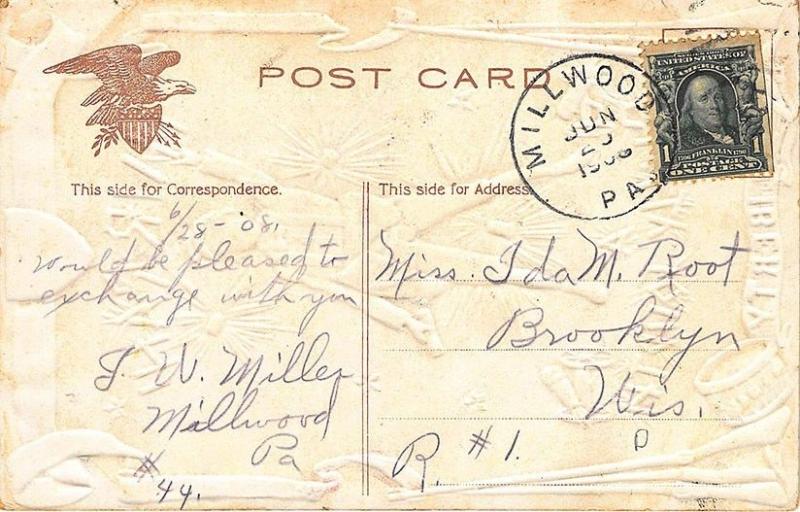 POST CARD
MILLWOOD
JUN
1908
PA
UNITED STATES OF
AMERICA
1706 FRANKLIN 1790
POSTAGE
1 ONE CENT
This side for Correspondence.
6/28-'08.
would be pleased to
exchange with you
J. W. Miller
Millwood
Pa
#44.
This side for Address
Miss. Ida M. Root
Brooklyn
Wis.
R. #1.